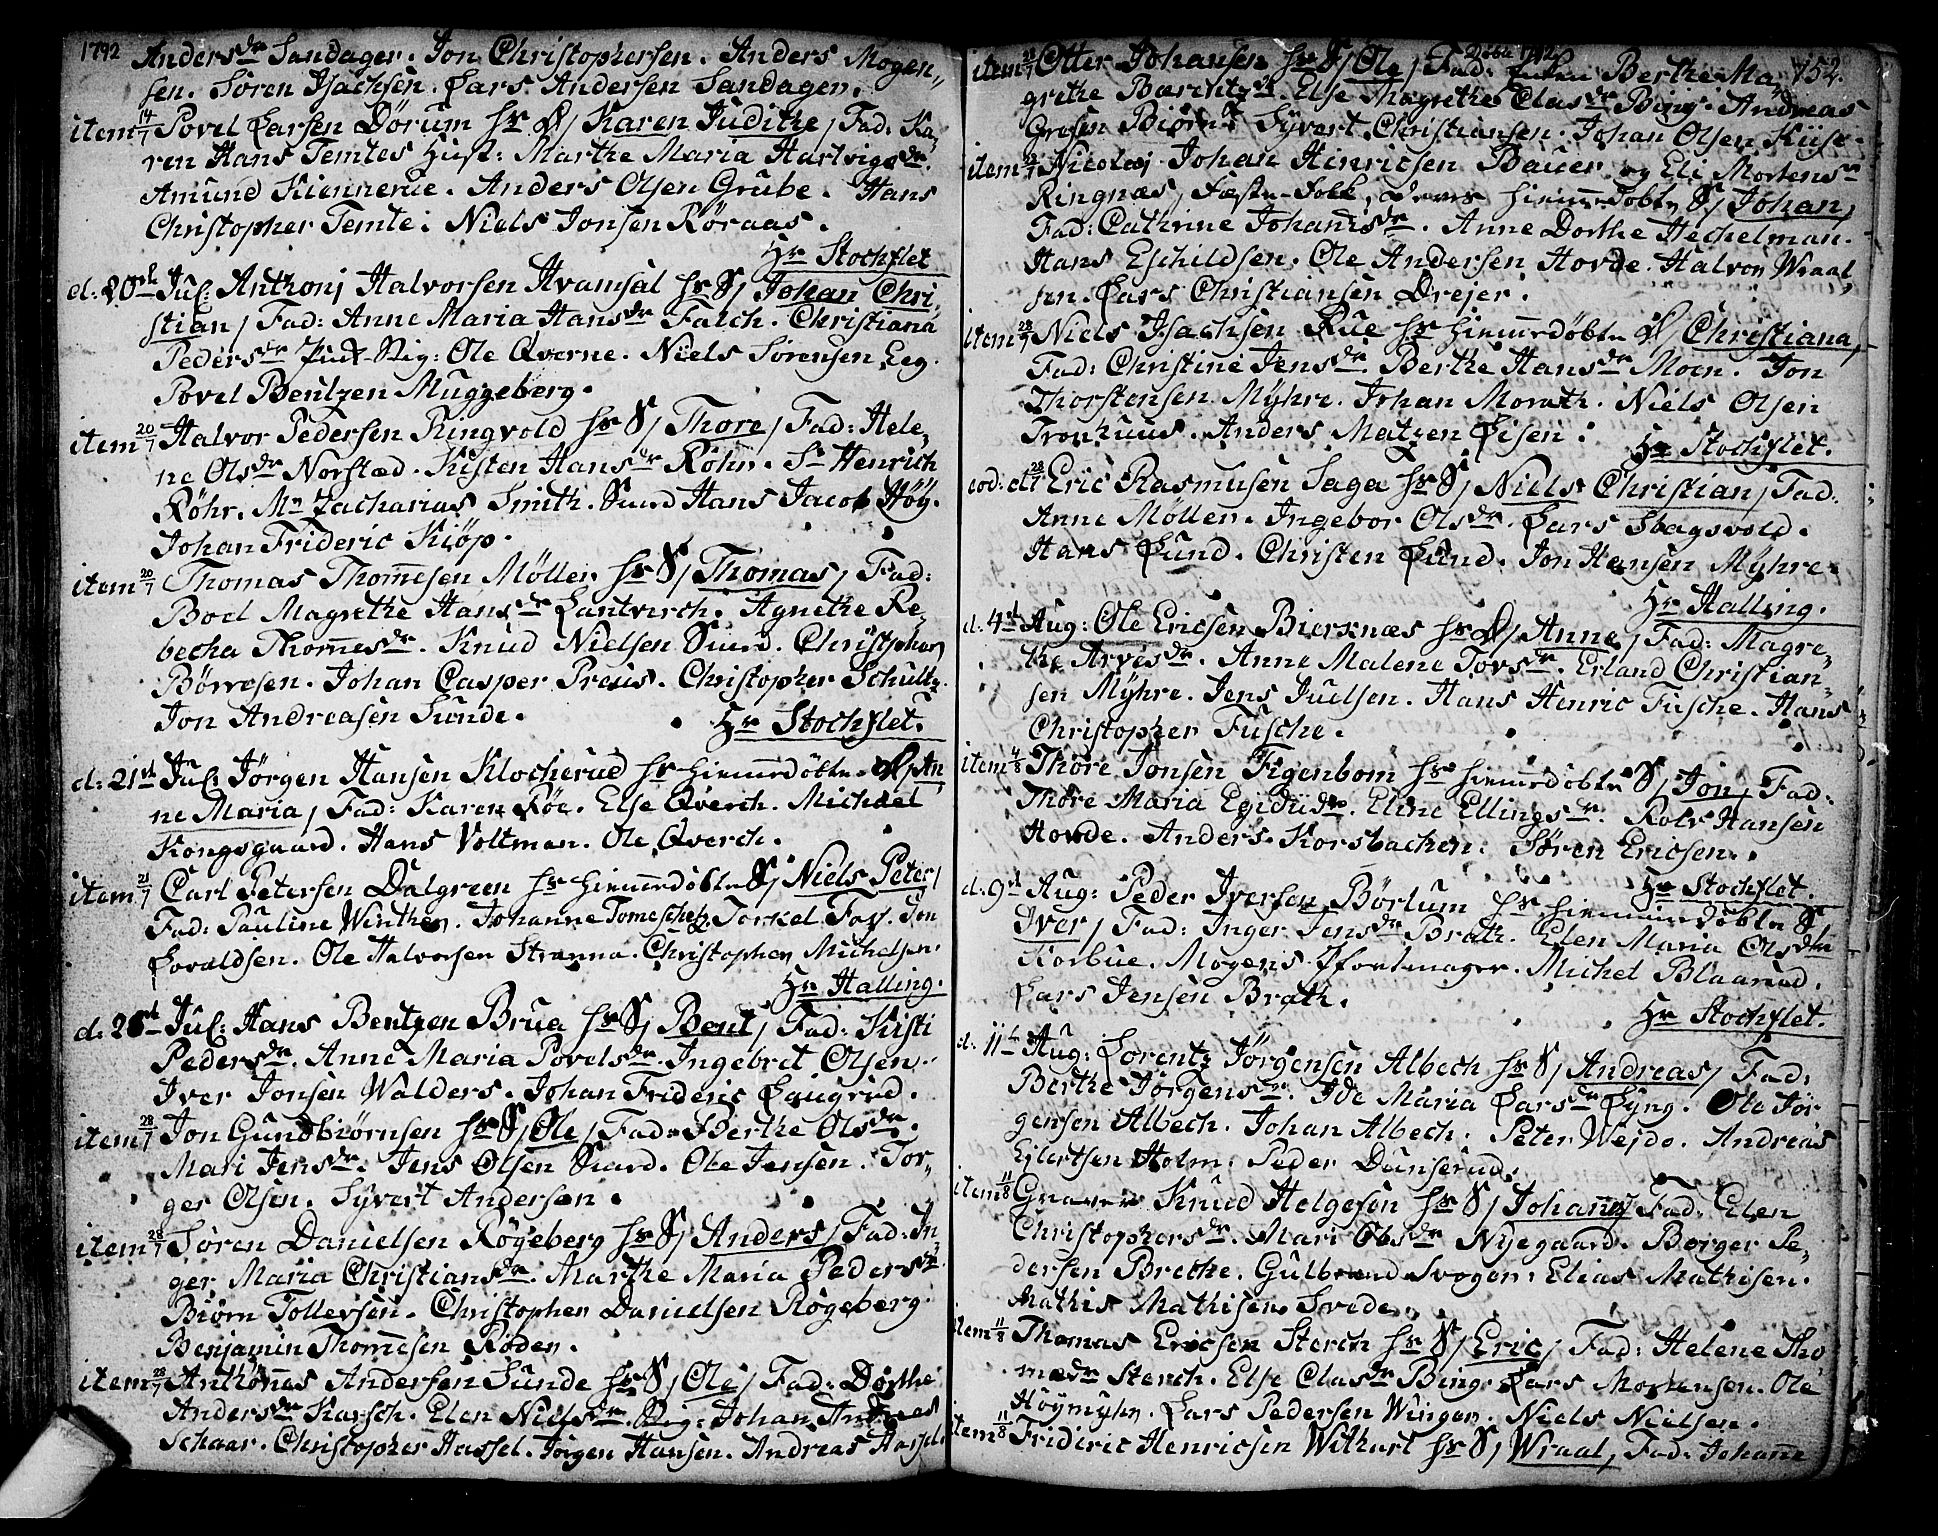 1792 Anders dr Sandager. Jon Christophersen. Anders Mogen-
sen. Sören Isachsen. Lars Andersen Sandager.
item 14/7 Povel Larsen Dörum hs D/ Karen Judithe/ Fad: Ka-
ren Hans Temtes Hust: Marthe Maria Hartvigs dr.
Amund Kiennerue. Anders Olsen Grube. Hans
Christopher Temte. Niels Jonsen Röraas.
Hr Stochflet
d: 20de Jul: Anthonj Halvorsen Hvamsal hs S/ Johan Chri-
stian/ Fad: Anne Maria Hans dr Falch. Christiana
Peders dr Sig: Ole Qverne. Niels Sörensen Eeg.
Povel Bentzen Muggeberg.
item 20/7 Halvor Pedersen Ringvold hs S/ Thore/ Fad: Hele-
ne Ols dr Norstæd. Kisten Hans dr Röhr. Sr Henrich
Röhr. Mr Zacharias Smith. Hans Jacob Höy.
Johan Frideric Kiöp.
item 20/7 Thomas Thomesen Möller hs S/ Thomas/ Fad:
Boel Magrethe Hans dr Lantverch. Agnethe Re-
becha Thommes dr. Knud Nielsen Sund. Christopher
Börresen. Johan Casper Preus. Christopher Schultz.
Jon Andreasen Sunde.
Hr Stochflet.
d: 21de Jul: Jörgen Hansen Klocherud hs hiemmedöbte D/ An-
ne Maria/ Fad: Karen Röe. Else Qverch. Michael
Kongsgaard. Hans Voltman. Ole Qverch.
item 21/7 Carl Petersen Dalgreen hs hiemmedöbte S/ Niels Peter/
Fad: Pauline Winther. Johanne Tomeschetz. Torkel Foy. Jon
Lovaldsen. Ole Halvorsen Strømma. Christopher Michelsen.
Hr Halling.
d: 28de Jul: Hans Bentzen Brua hs S/ Bent/ Fad: Kisti
Peders dr. Anne Maria Povels dr. Ingebret Olsen.
Iver Jonsen Walders. Johan Frideric Haugrud.
item 28/7 Jon Gundbiörnsen hs S/ Ole/ Fad: Berthe Ols dr.
Mari Jens dr. Jens Olsen Sund. Ole Jensen. Tor-
ger Olsen. Syvert Andersen.
item 28/7 Sören Danielsen Rögeberg hs S/ Anders/ Fad: In-
ger Maria Christians dr. Marthe Maria Peders dr.
Biörn Tollevsen. Christopher Danielsen Rögeberg.
Benjamin Thomesen Röden.
item 28/7 Anthönnes Andersen Sunde hs S/ Ole/ Fad: Dorthe
Anders dr Karsch. Elen Niels dr. Sig: Johan Andreas
Schaar. Christopher Hassel. Jörgen Hansen. Andreas Hassel.
Döbte 1792 152.
item 28/7 Otter Johansen hs S/ Ole/ Fad: Berthe Ma-
grethe Bærevitz. Else Magrethe Clas dr Bing. Andreas
Gresen Biörn. Syvert Christiansen. Johan Olsen Kiise.
item 28/7 Nicolaj Johan Hinricsen Bauer og Eli Mortens dr
Ringnæs, Fæste-Folk, deres hiemmedöbte S/ Johan/
Fad: Cathrine Johanis dr. Anne Dorthe Hechelman.
Hans Eschildsen. Ole Andersen Hovde. Halvor Wraal-
sen. Lars Christiansen Drejer.
item 28/7 Niels Isachsen Rue hs hiemmedöbte D/ Christiana/
Fad: Christine Jens dr. Berthe Hans dr Moen. Jon
Thorstensen Myhre. Johan Morath. Niels Olsen
Tronhuus. Anders Matzen Eisen.
Hr Stochflet.
eod: d: 28/7 Eric Rasmusen Saga hs S/ Niels Christian/ Fad:
Anne Möller. Ingebor Ols dr. Lars Stagsvold.
Hans Lund. Christen Lund. Jon Hansen Myhre.
Hr Halling.
d: 4de Aug: Ole Ericsen Biersnæs hs D/ Anne/ Fad: Magre-
the Arvis dr. Anne Malene Tovs dr. Erland Christian-
sen Myhre. Jens Juelsen. Hans Henric Fusche. Hans
Christopher Fusche.
item 4/8 Thore Jonsen Figenbom hs hiemmedöbte S/ Jon/ Fad:
Thore Maria Egidii dr. Eline Ellings dr. Rolv Hansen
Hovde. Anders Korsbachen. Sören Ericsen.
Hr Stochflet.
d: 9de Aug: Peder Iversen Börlum hs hiemmedöbte S/
Iver/ Fad: Inger Jens dr Brath. Elen Maria Ols dr
Korbue. Mogens Portmager. Michel Blaarud.
Lars Jensen Brath.
Hr Stochflet.
d: 11te Aug: Lorentz Jörgensen Albech hs S/ Andreas/ Fad:
Berthe Jörgens dr. Ide Maria Lars dr Lyng. Ole Jör-
gensen Albech. Johan Albech. Peter Wejdo. Andreas
Ejlertsen Holm. Peder Dunserud.
item 11/8 Graver Knud Helgesen hs S/ Johanes/ Fad: Elen
Christophers dr. Mari Obs dr Nyegaard. Borger Pe-
dersen Brethe. Gulbrand Svogen. Elias Mathisen.
Mathis Mathisen Svede.
item 11/8 Thomas Ericsen Sterch hs S/ Eric/ Fad: Helene Tho-
mes dr Sterch. Else Clas dr Bing. Lars Mortensen. Ole
Höymyhr. Lars Pedersen Wiiger. Niels Nielsen.
item 11/8 Frideric Henricsen Withurt hs S/ Wraal/ Fad: Johanne